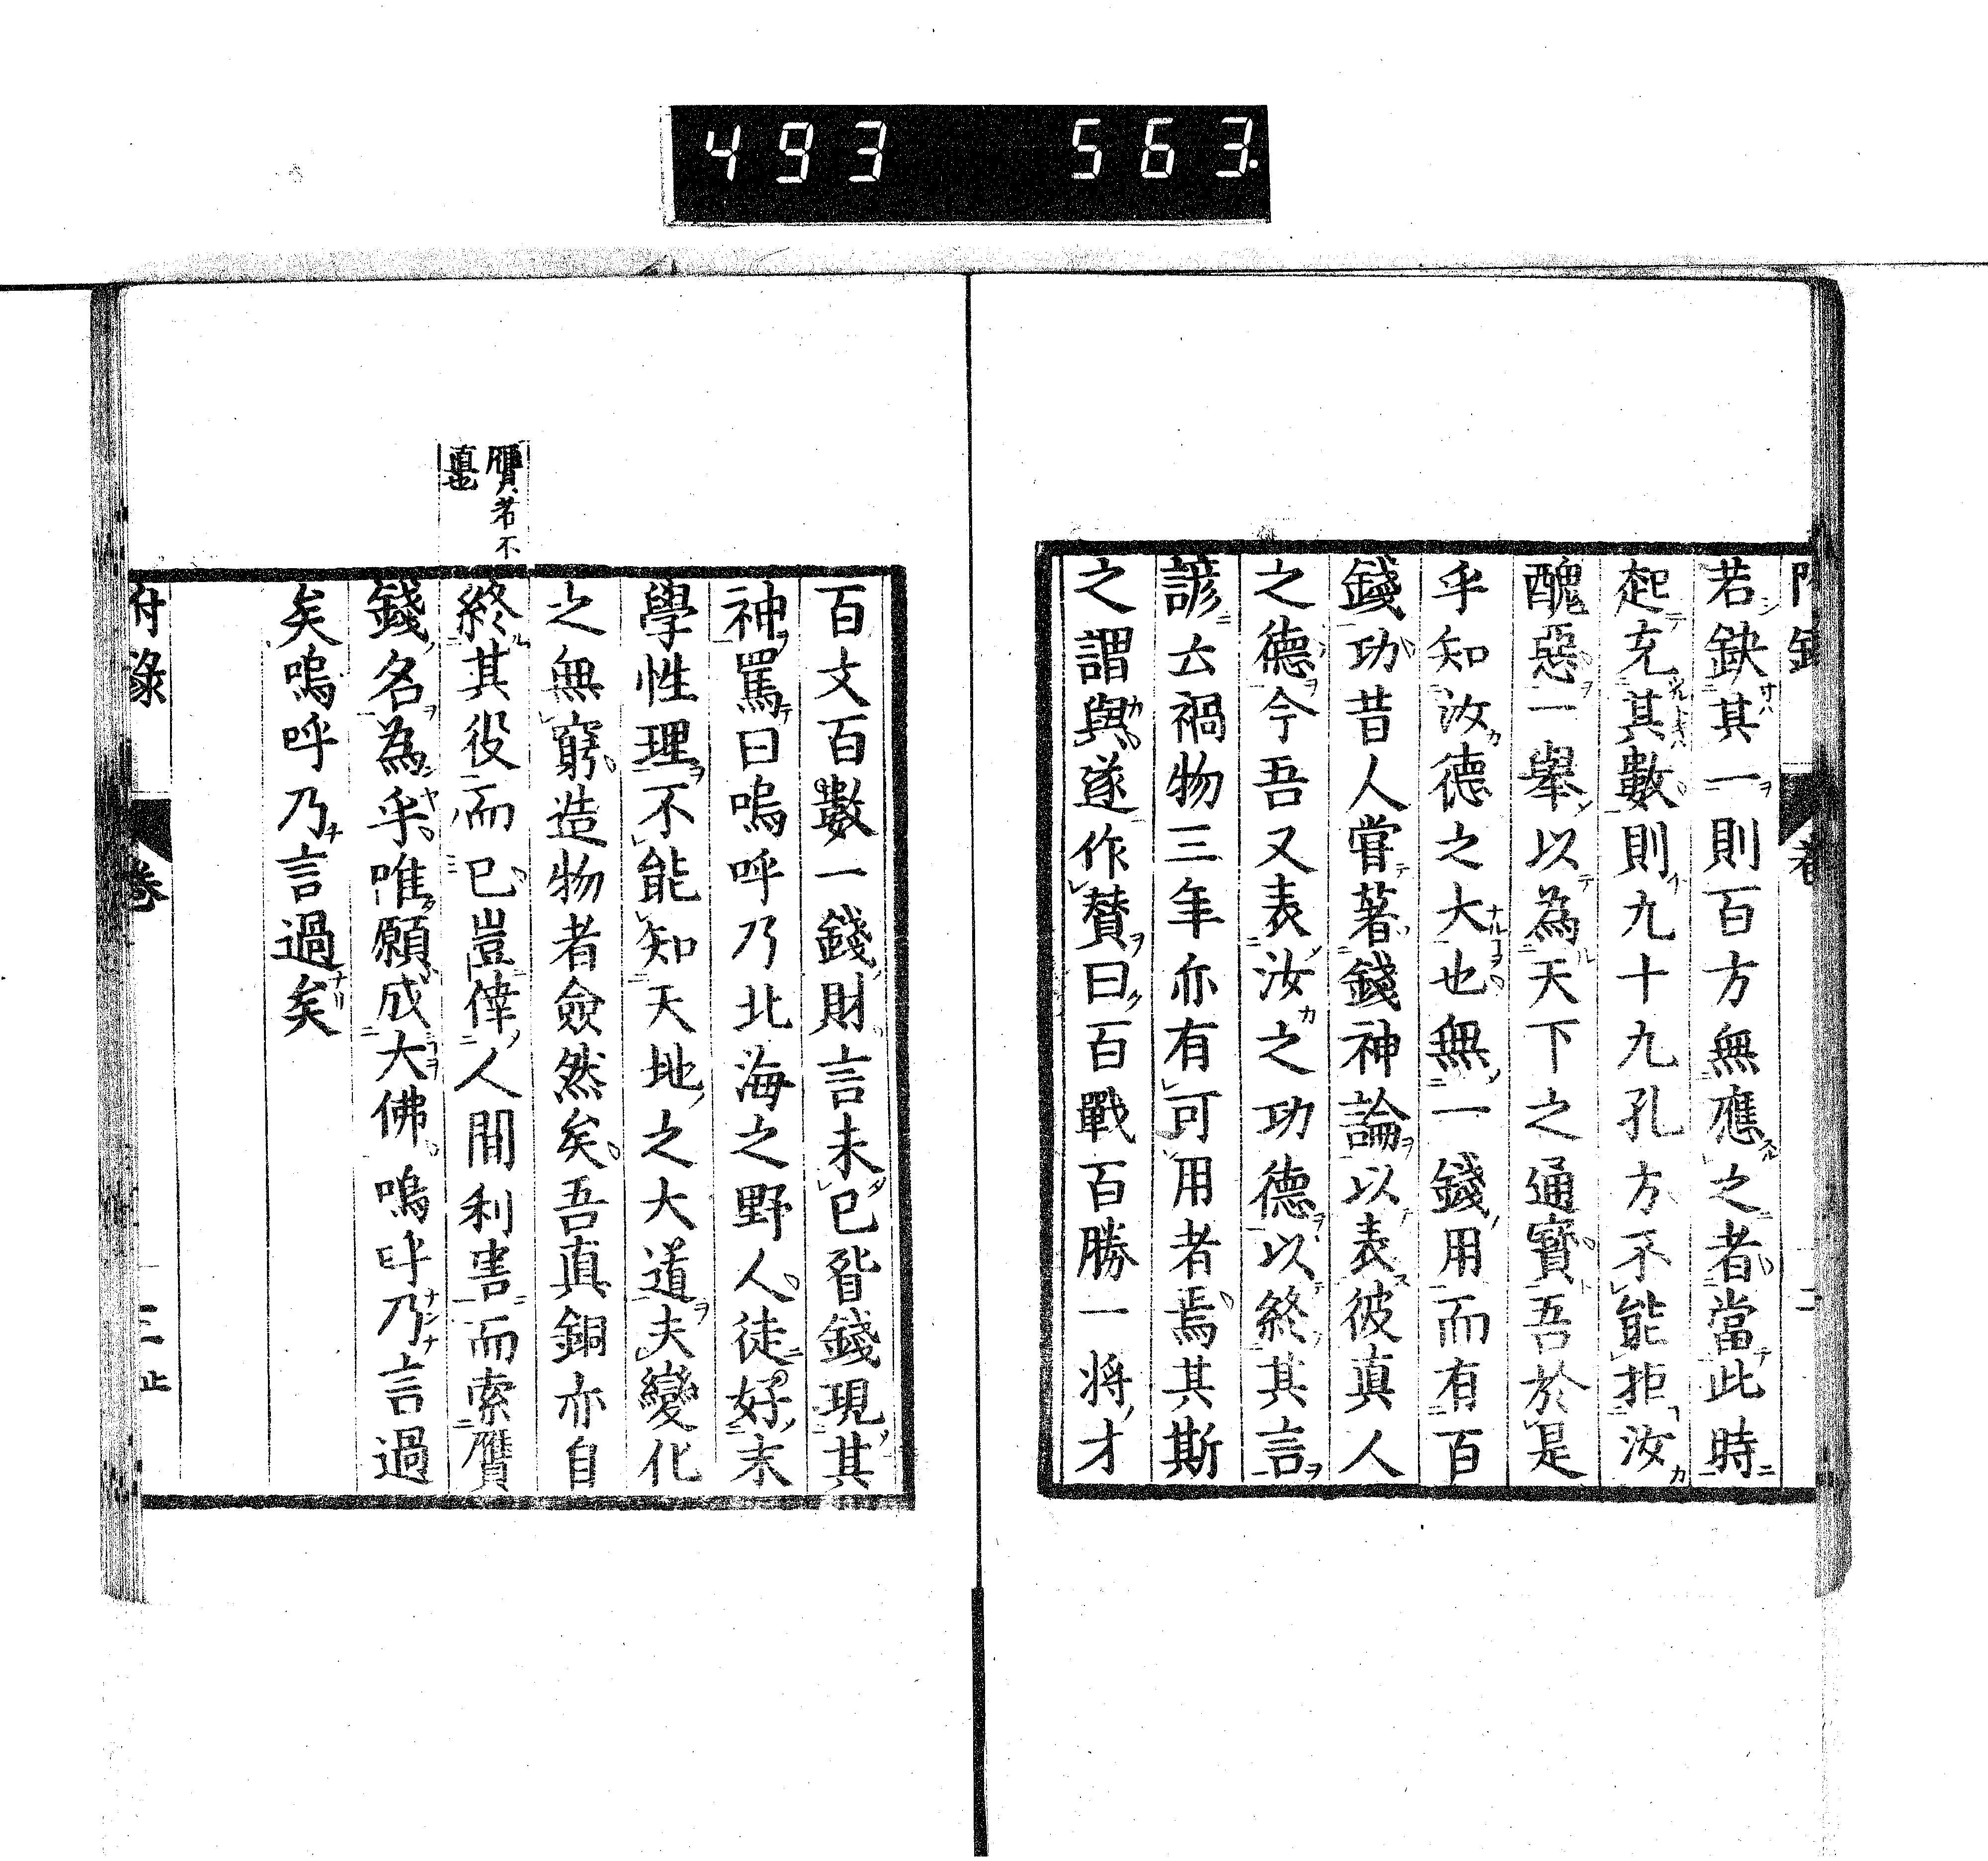 493 563
若缺其一則百方無應之者當此時
起充其數則九十九孔方不能拒汝
醜惡一舉以為天下之通寶吾於是
乎知汝德之大也無一錢用而有百
錢功昔人嘗著錢神論以表彼真人
之德今吾又表汝之功德以終其言
諺云禍物三年亦有可用者焉其斯
之謂與遂作贊曰百戰百勝一将才
百文百數一錢財言未已眢錢現其
神罵曰嗚呼乃北海之野人徒好末
學性理不能知天地之大道夫變化
之無窮造物者僉然矣吾真銅亦自
終其役而已豈倖人間利害而索贋
錢名為乎唯願成大佛嗚呼乃言過
矣嗚呼乃言過矣
贋者不
真也
附錄 卷 三止